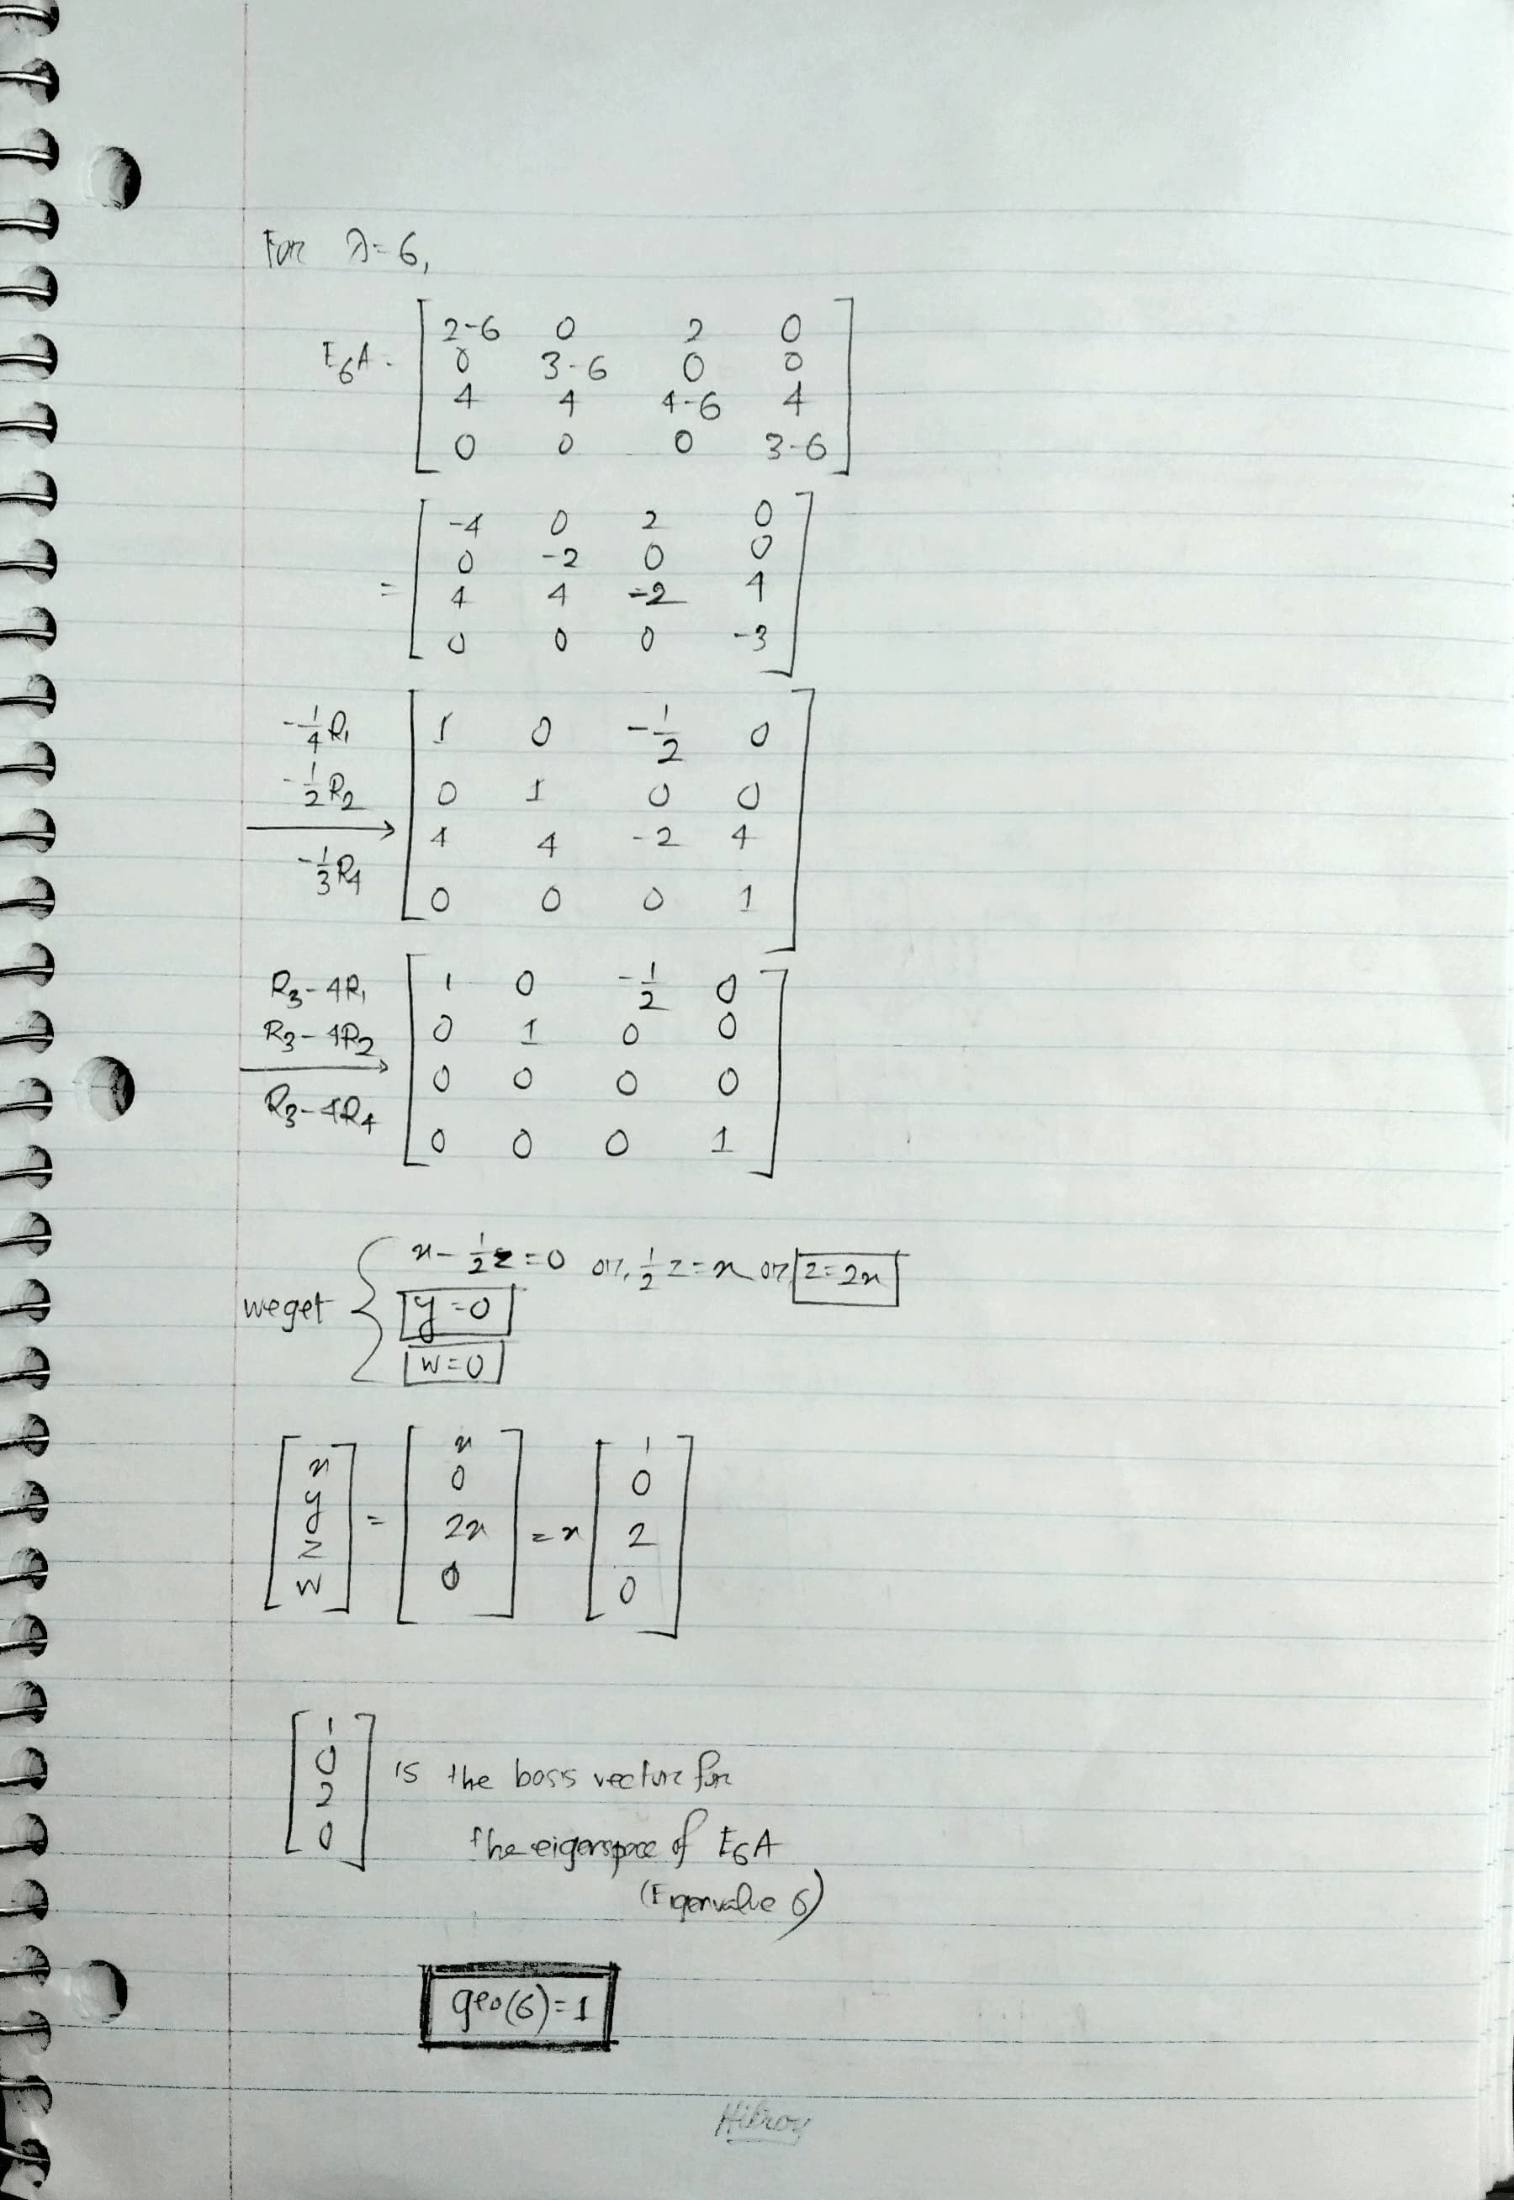 For λ=6,
E6A = [ 2-6 0 2 0
0 3-6 0 0
4 4 4-6 4
0 0 0 3-6 ]
= [ -4 0 2 0
0 -2 0 0
4 4 -2 4
0 0 0 -3 ]
-1/4 R1 [ 1 0 -1/2 0
-1/2 R2 0 1 0 0
→ 4 4 -2 4
-1/3 R4 0 0 0 1 ]
R3-4R1 [ 1 0 -1/2 0
R3-4R2 0 1 0 0
→ 0 0 0 0
R3-4R4 0 0 0 1 ]
we get { x - 1/2 z = 0 or, 1/2 z = x or z = 2x
y = 0
w = 0
[ x y z w ] = [ x 0 2x 0 ] = x [ 1 0 2 0 ]
[ 1 0 2 0 ] is the basis vector for
the eigenspace of E6A
(Eigenvalue 6)
geo(6) = 1
Hilroy